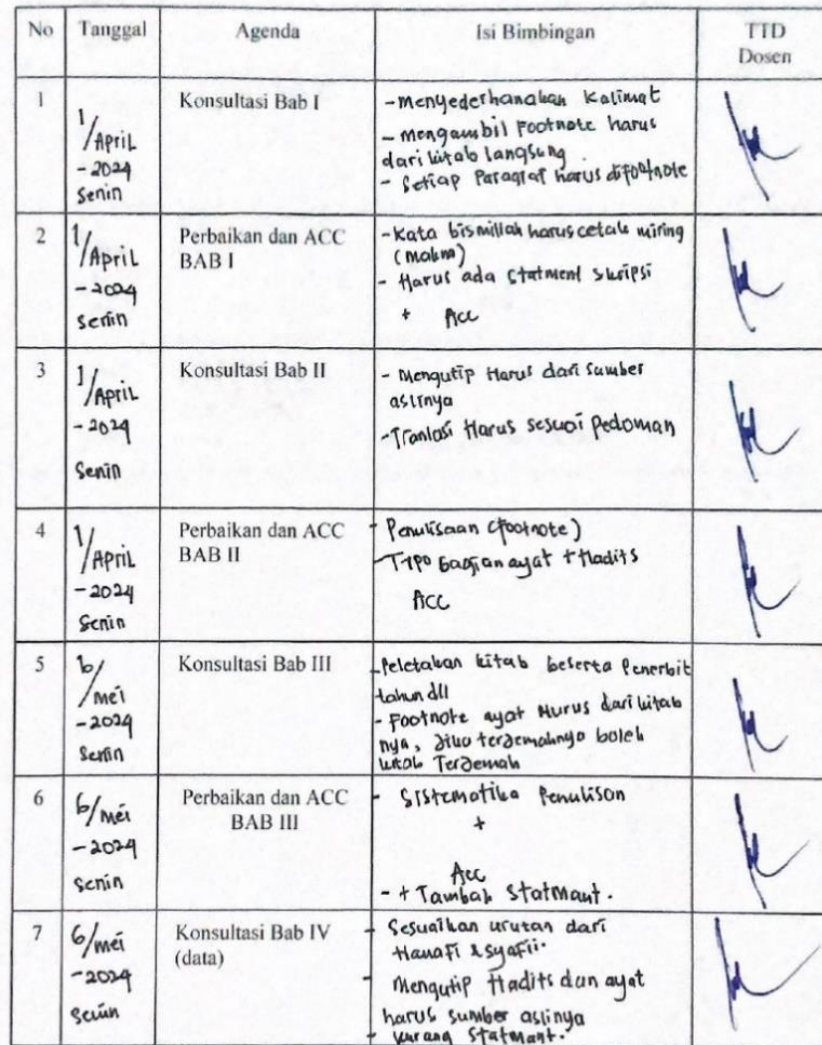 No Tanggal Agenda Isi Bimbingan TTD
Dosen
1
1/April
-2024
Senin
Konsultasi Bab I
-menyederhanakan Kalimat
- mengambil Footnote harus
dari kitab langsung
- Setiap Paragraf harus difootnote
2
1/April
-2024
Senin
Perbaikan dan ACC
BAB I
-Kata bismillah harus cetak miring
(makna)
- Harus ada Statment Skripsi
+ Acc
3
1/April
-2024
Senin
Konsultasi Bab II
- Mengutip Harus dari sumber
aslinya
-Tranlasi Harus sesuai Pedoman
4
1/April
-2024
Senin
Perbaikan dan ACC
BAB II
- Penulisaan (footnote)
-Typo bagian ayat + Hadits
ACC
5
6/mei
-2024
Senin
Konsultasi Bab III
-Peletakan kitab beserta Penerbit
tahun dll
- Footnote ayat Harus dari kitab
nya, Jika terjemahnya boleh
kitab Terjemah
6
6/mei
-2024
Senin
Perbaikan dan ACC
BAB III
- Sistematika Penulisan
+
Acc
- + Tambah Statmant.
7
6/mei
-2024
Senin
Konsultasi Bab IV
(data)
- Sesuaikan urutan dari
Hanafi & Syafii.
- Mengutip Hadits dan ayat
harus sumber aslinya
- kurang Statmant.